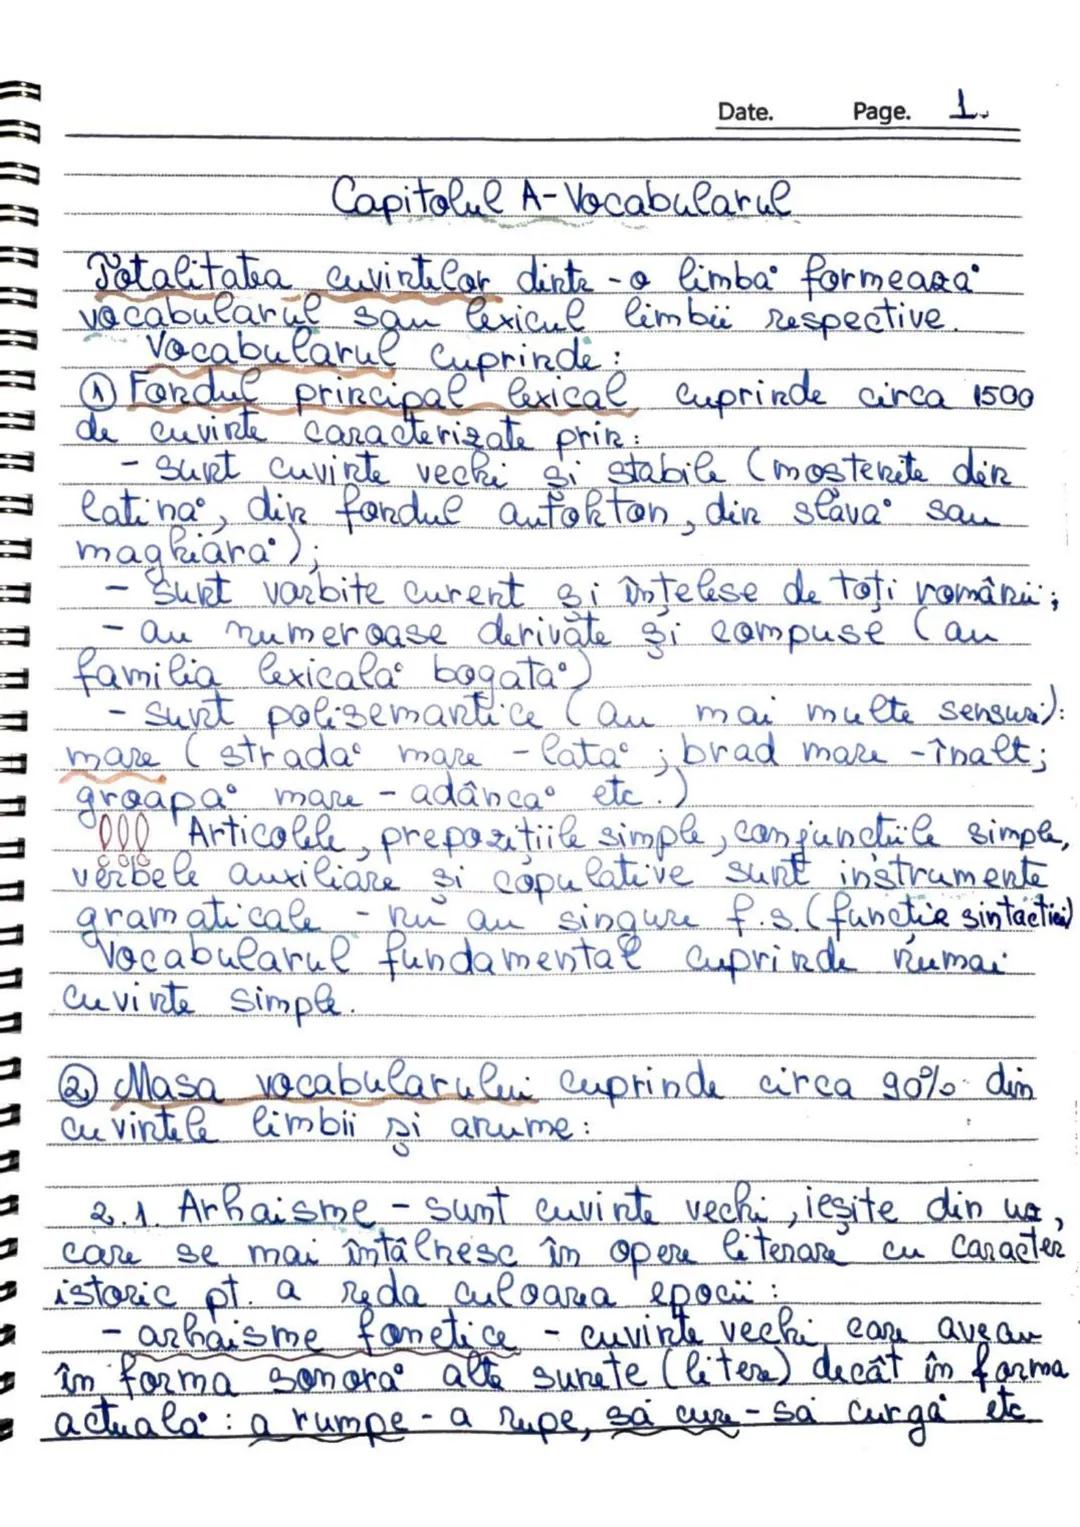 Date. Page. 1.
Capitolul A-Vocabularul
Totalitatea cuvintelor dintr-o limbă formează
vocabularul sau lexicul limbii respective.
Vocabularul cuprinde:
① Fondul principal lexical cuprinde circa 1500
de cuvinte caracterizate prin:
- sunt cuvinte vechi și stabile (moștenite din
latină, din fondul autohton, din slavă sau
maghiară);
- sunt vorbite curent și înțelese de toți românii;
- au numeroase derivate și compuse (au
familia lexicală bogată)
- sunt polisemantice (au mai multe sensuri):
mare (stradă mare - lată; brad mare - înalt;
groapă mare - adâncă etc.)
!!! Articolele, prepozițiile simple, conjuncțiile simple,
verbele auxiliare și copulative sunt instrumente
gramaticale - nu au singure f.s. (funcție sintactică)
Vocabularul fundamental cuprinde numai
cuvinte simple.
② Masa vocabularului cuprinde circa 90% din
cuvintele limbii și anume:
2.1. Arhaisme - sunt cuvinte vechi, ieșite din uz,
care se mai întâlnesc în opere literare cu caracter
istoric pt. a reda culoarea epocii:
- arhaisme fonetice - cuvinte vechi care aveau
în forma sonoră alte sunete (litere) decât în forma
actuală: a rumpe - a rupe, să cure - să curgă etc